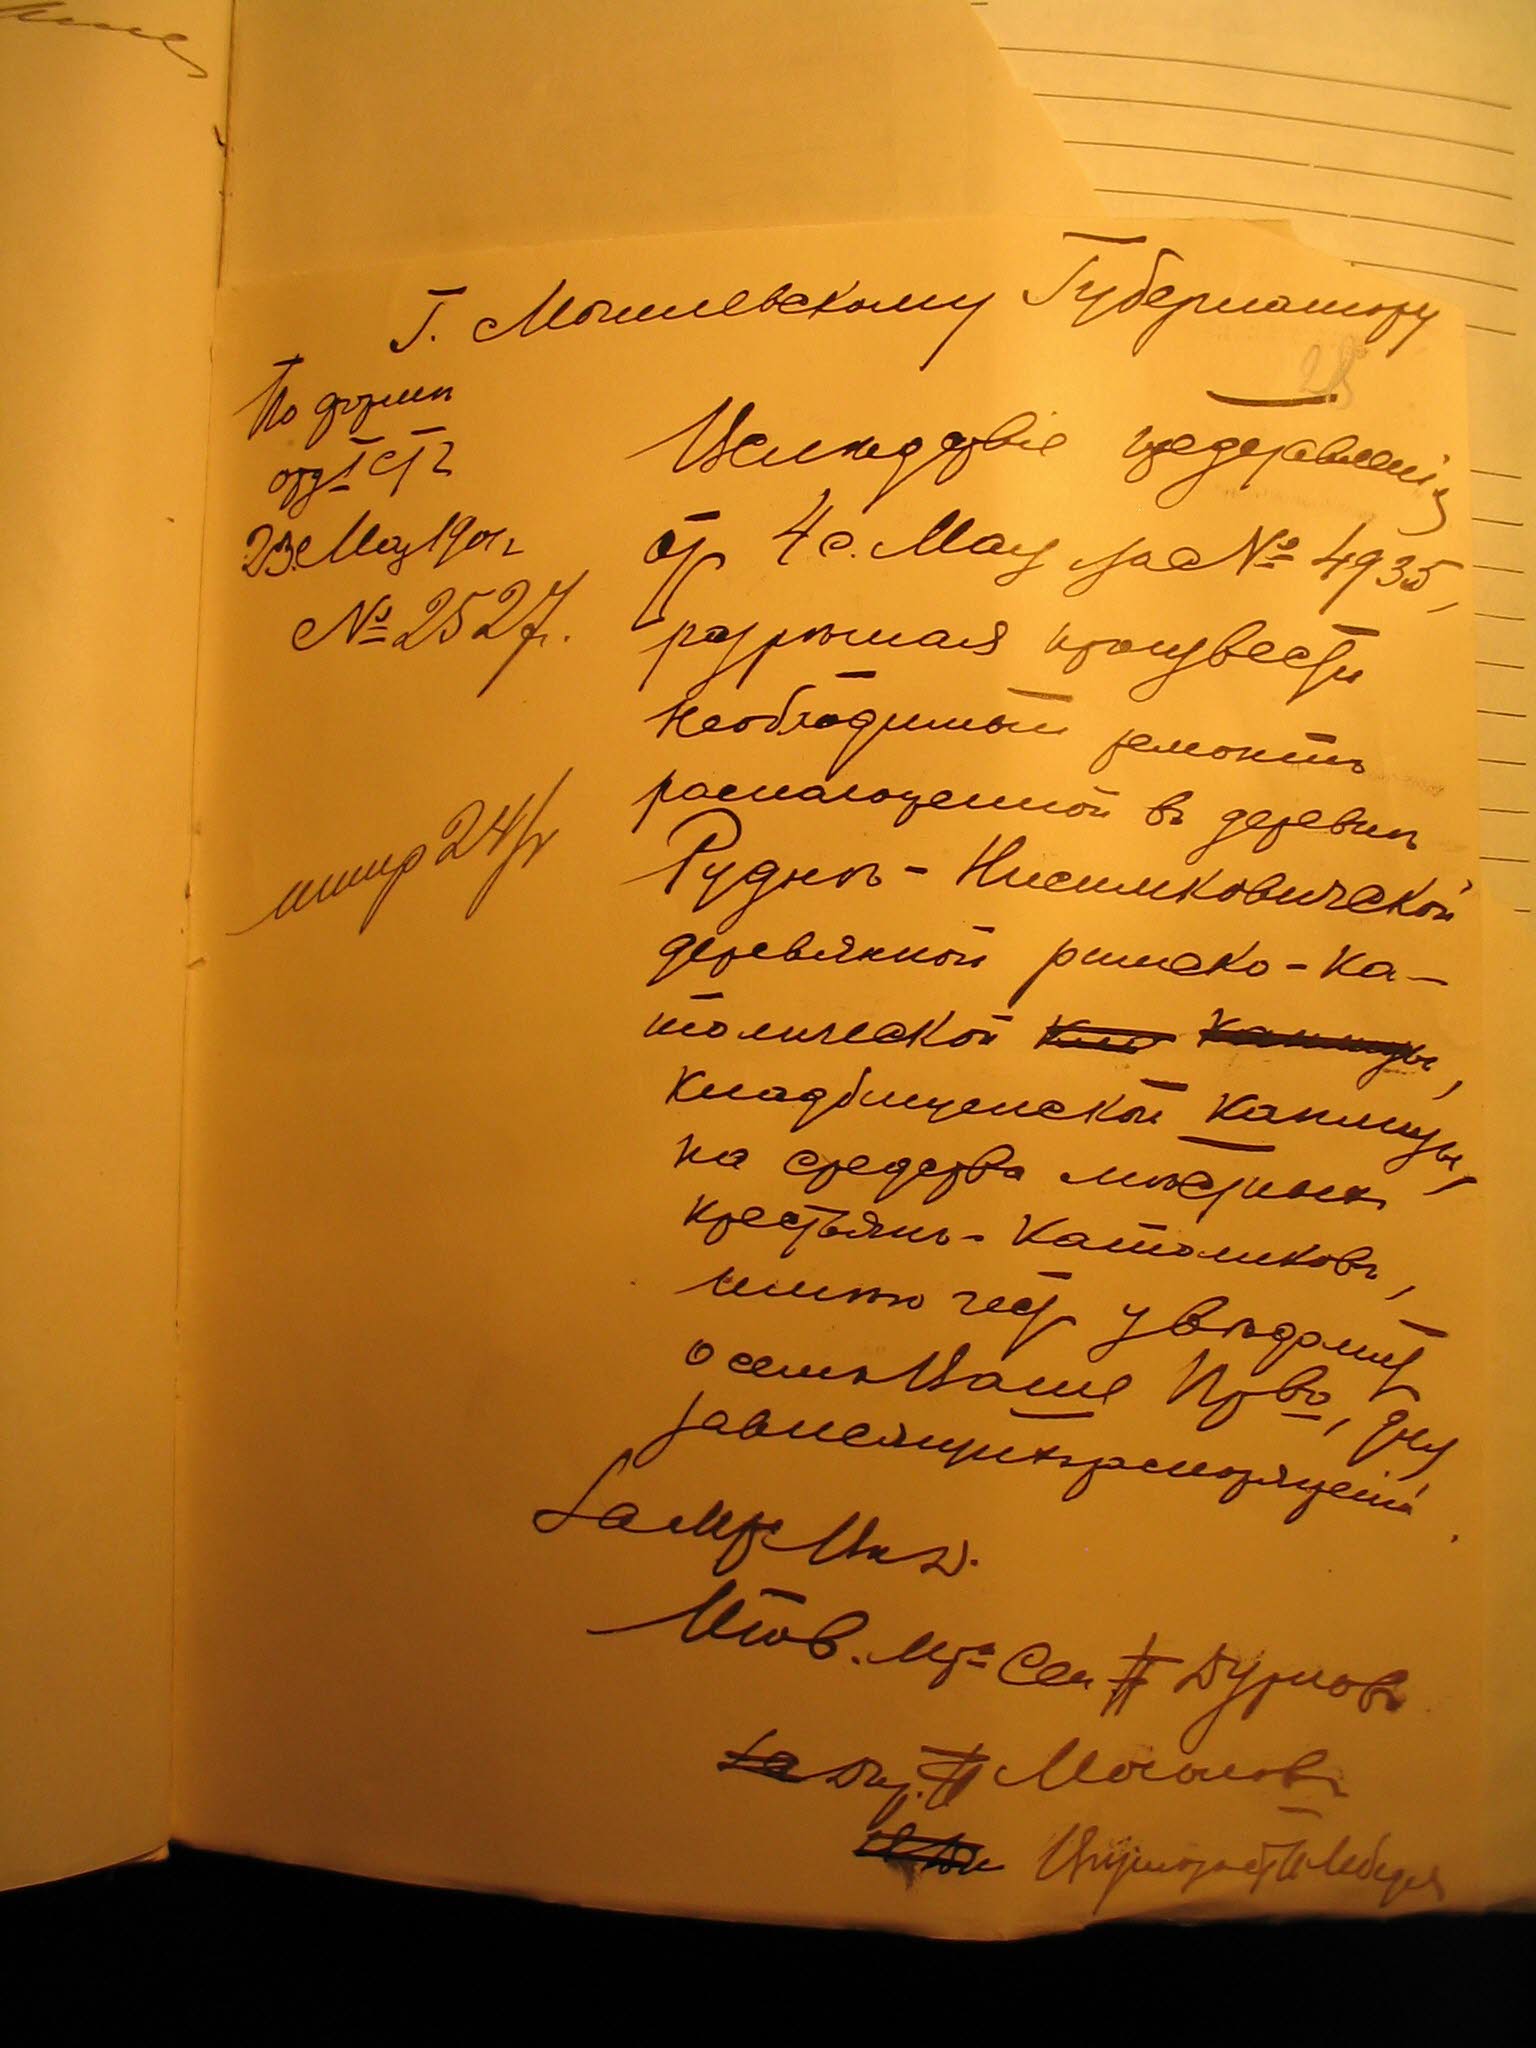 Г. Могилевскому Губернатору
28
По форме
23 Мая 1901 г.
№ 2527.
Вследствіе представленія
отъ 4 с. Мая за № 4935,
разрѣшая произвести
необходимый ремонтъ
расположенной въ деревнѣ
Руднѣ-Нисимковической
деревянной римско-ка-
толической каплицы,
кладбищенской каплицы,
на средства мѣстныхъ
крестьянъ-католиковъ,
имѣю честь увѣдомить
о семъ Ваше Прво, для
зависящихъ распоряженій.
Мин. Вн. Д.
Дурново
Дир. Мосоловъ